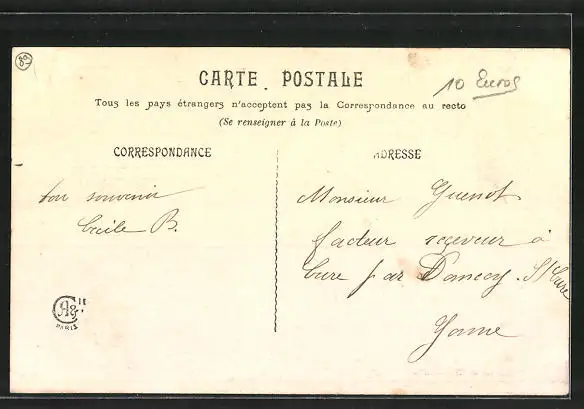 89
CARTE POSTALE
10 Euros
Tous les pays étrangers n'acceptent pas la Correspondance au recto
(Se renseigner à la Poste)
CORRESPONDANCE
ADRESSE
bon souvenir
Cécile B.
Monsieur Guenot
facteur receveur à
Cure par Domecy S/ Cure
Yonne
PARIS